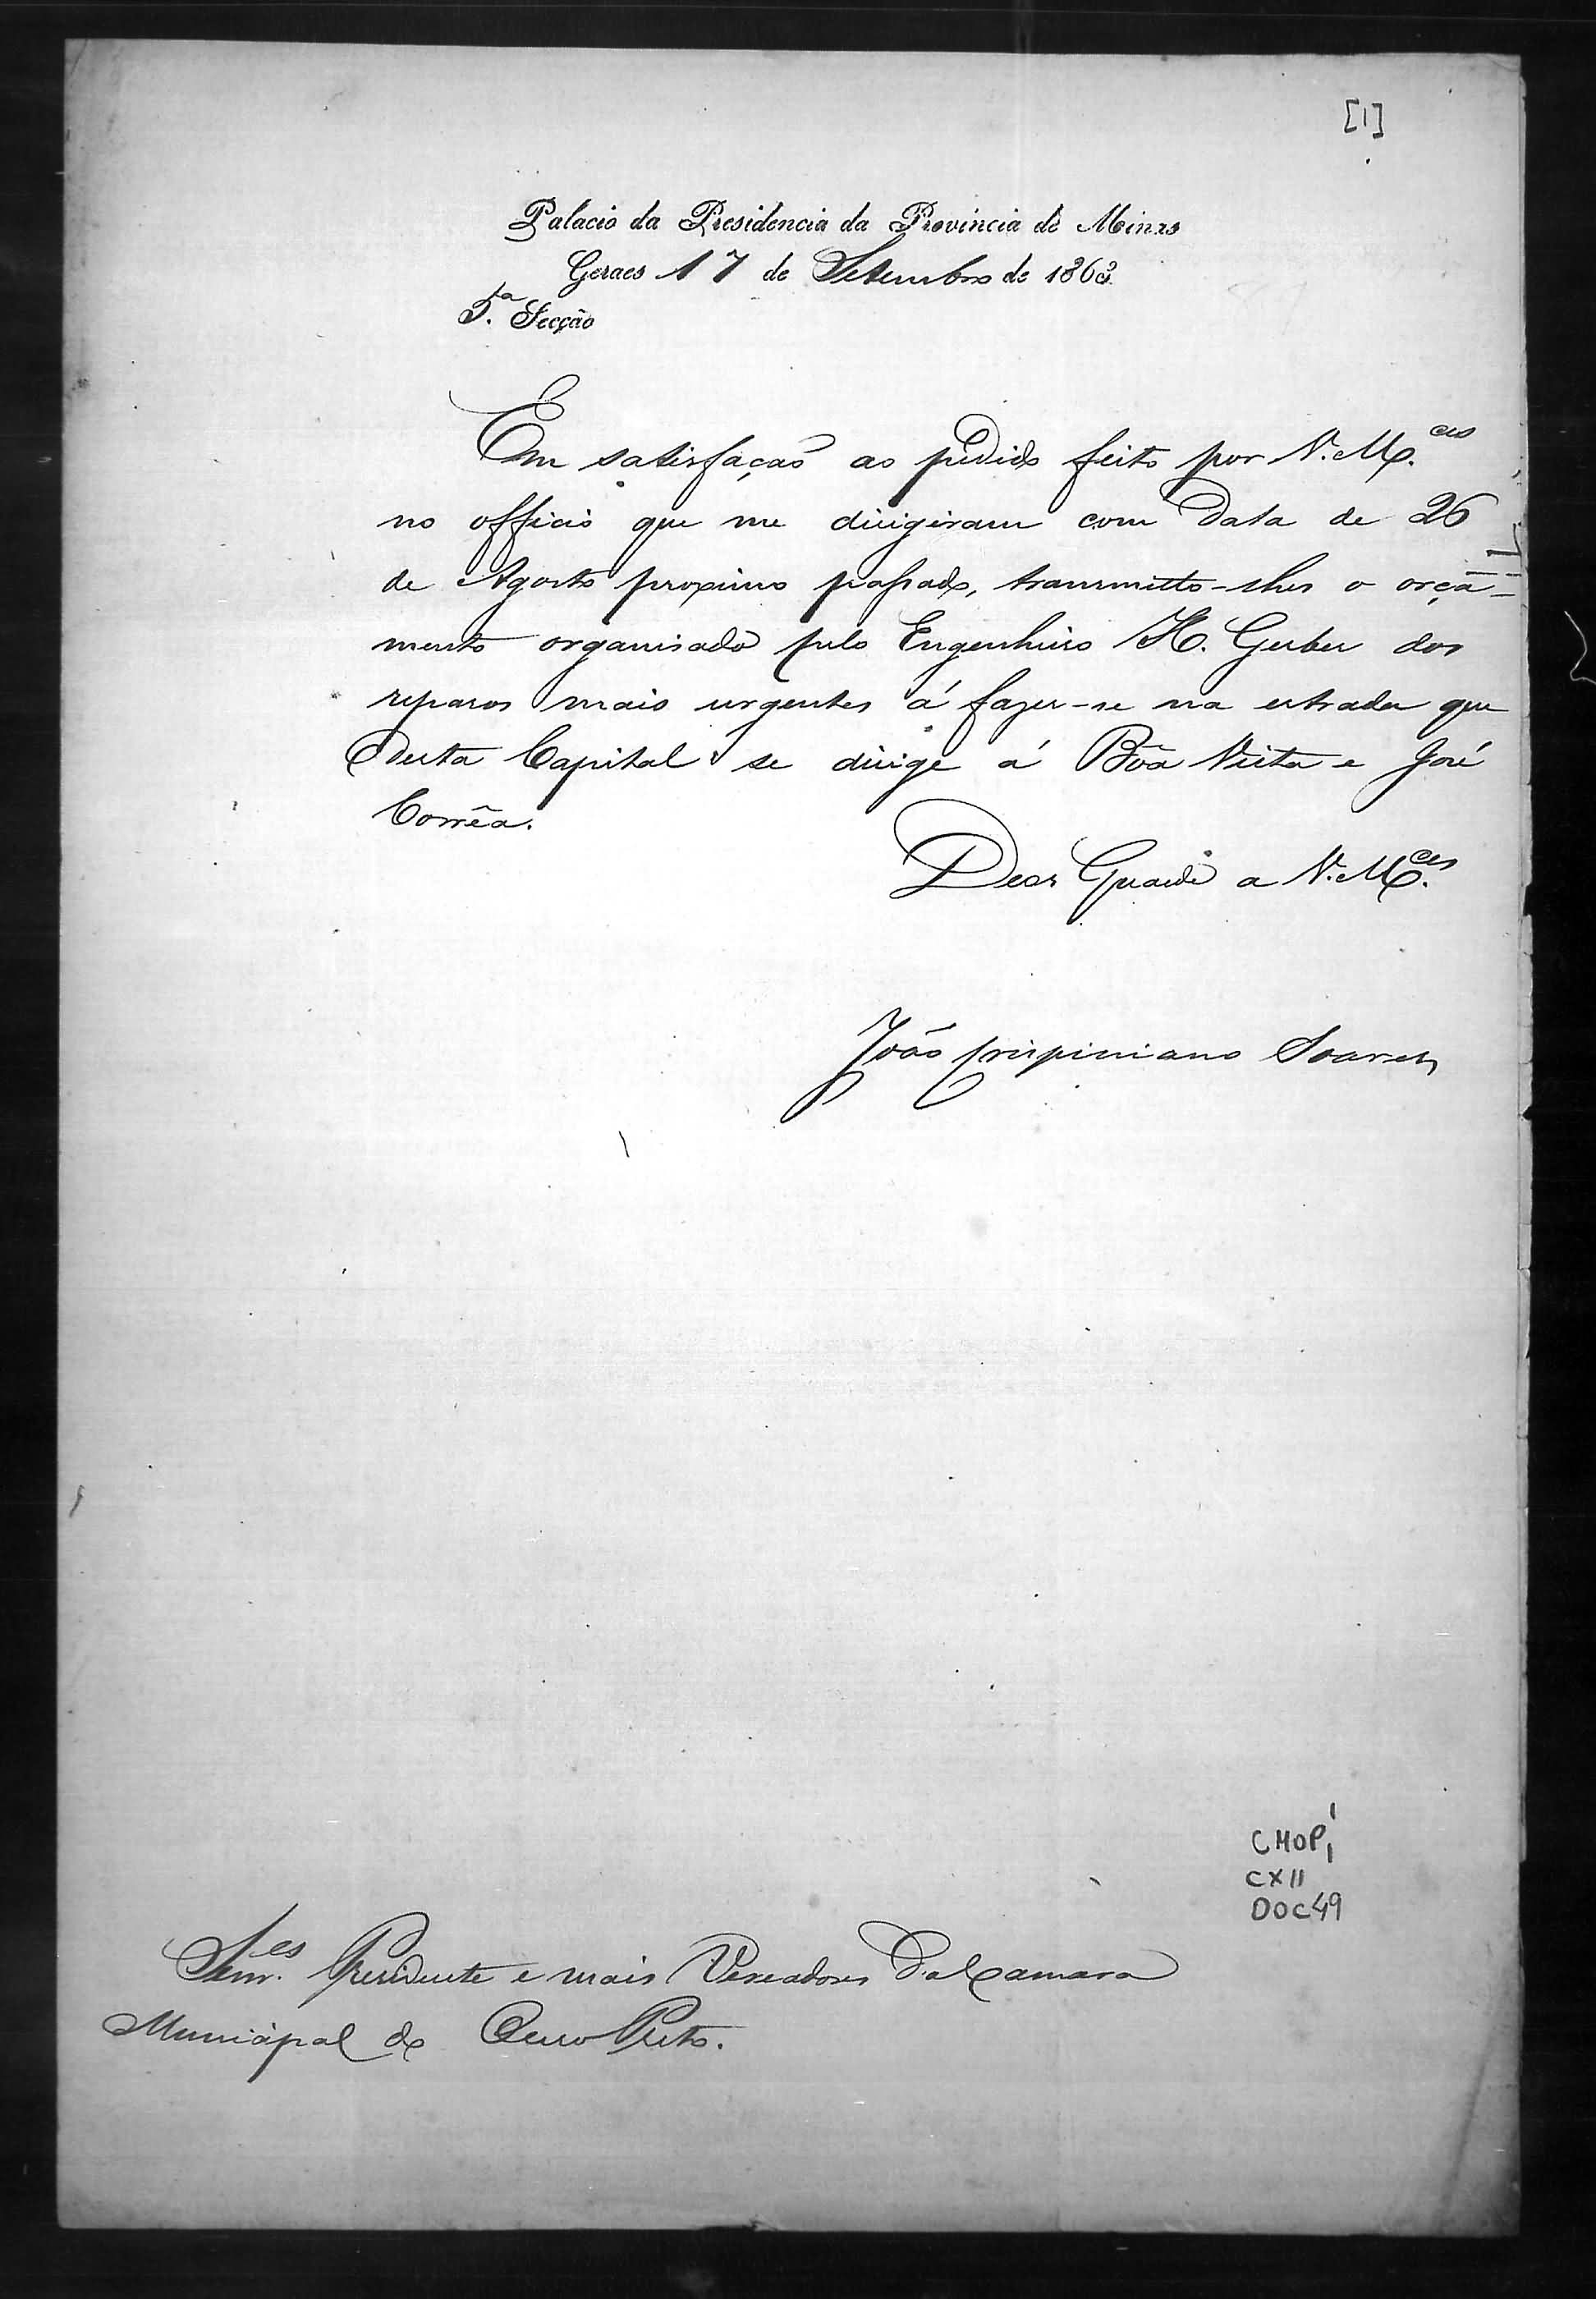 [1]
Palacio da Presidencia da Provincia de Minas
Geraes 17 de Setembro de 1863
5.ª Secção
Em satisfação ao pedido feito por V. M.ces
no officio que me dirigiram com data de 26
de Agosto proximo passado, transmitto-lhes o orça-
mento organisado pelo Engenheiro H. Gerber dos
reparos mais urgentes á fazer-se na estrada que
desta Capital se dirige á Bôa Vista e José
Corrêa.
Deos Guarde a V. M.ces
João Crispiniano Soares
CMOP
CX 11
DOC 49
Snr.es Presidente e mais Vereadores da Camara
Municipal do Ouro Preto.